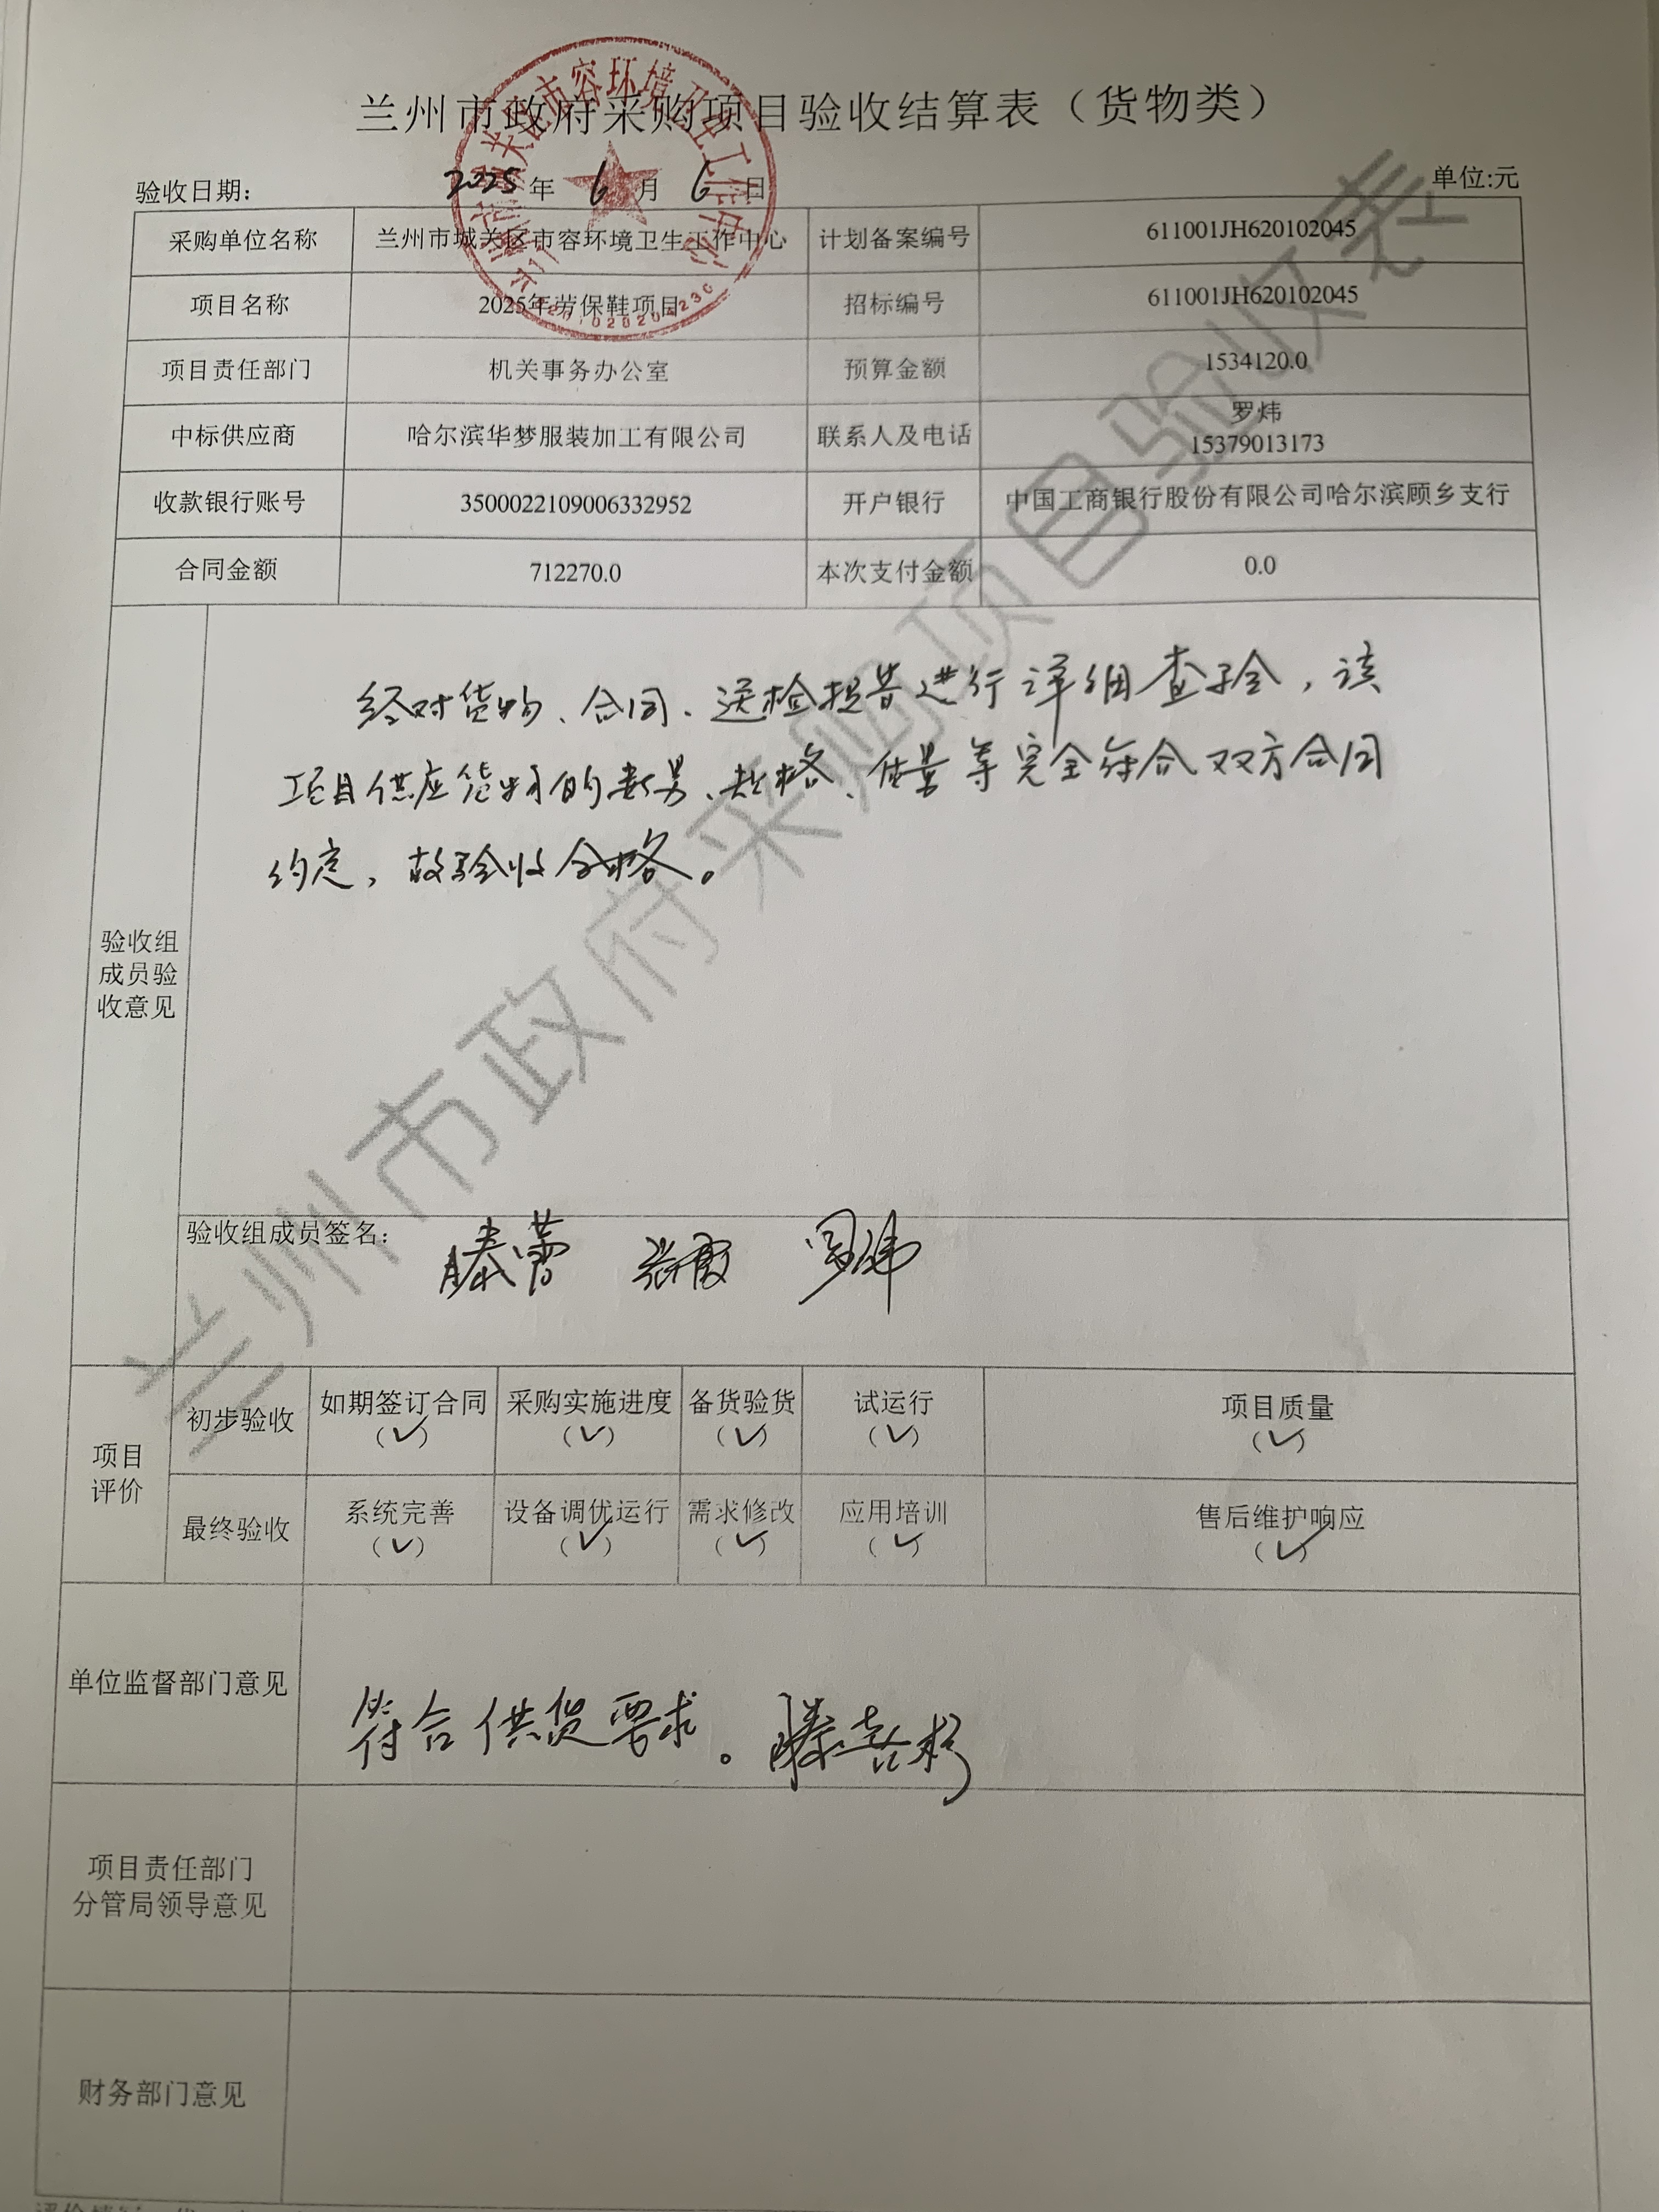 兰州市政府采购项目验收结算表（货物类）
验收日期： 2025 年 6 月 6 日 单位:元
采购单位名称 兰州市城关区市容环境卫生工作中心 计划备案编号 611001JH620102045
项目名称 2025年劳保鞋项目 招标编号 611001JH620102045
项目责任部门 机关事务办公室 预算金额 1534120.0
中标供应商 哈尔滨华梦服装加工有限公司 联系人及电话 罗炜
15379013173
收款银行账号 3500022109006332952 开户银行 中国工商银行股份有限公司哈尔滨顾乡支行
合同金额 712270.0 本次支付金额 0.0
经对货物、合同、送检报告进行详细查验，该
项目供应货物的数量、规格、质量等完全符合双方合同
约定，故验收合格。
验收组
成员验
收意见
验收组成员签名： 滕蕾 张霞 罗炜
项目
评价
初步验收 如期签订合同 采购实施进度 备货验货 试运行 项目质量
（✓） （✓） （✓） （✓） （✓）
最终验收 系统完善 设备调优运行 需求修改 应用培训 售后维护响应
（✓） （✓） （✓） （✓） （✓）
单位监督部门意见
符合供货要求。滕
项目责任部门
分管局领导意见
财务部门意见
兰州市政府采购项目验收表